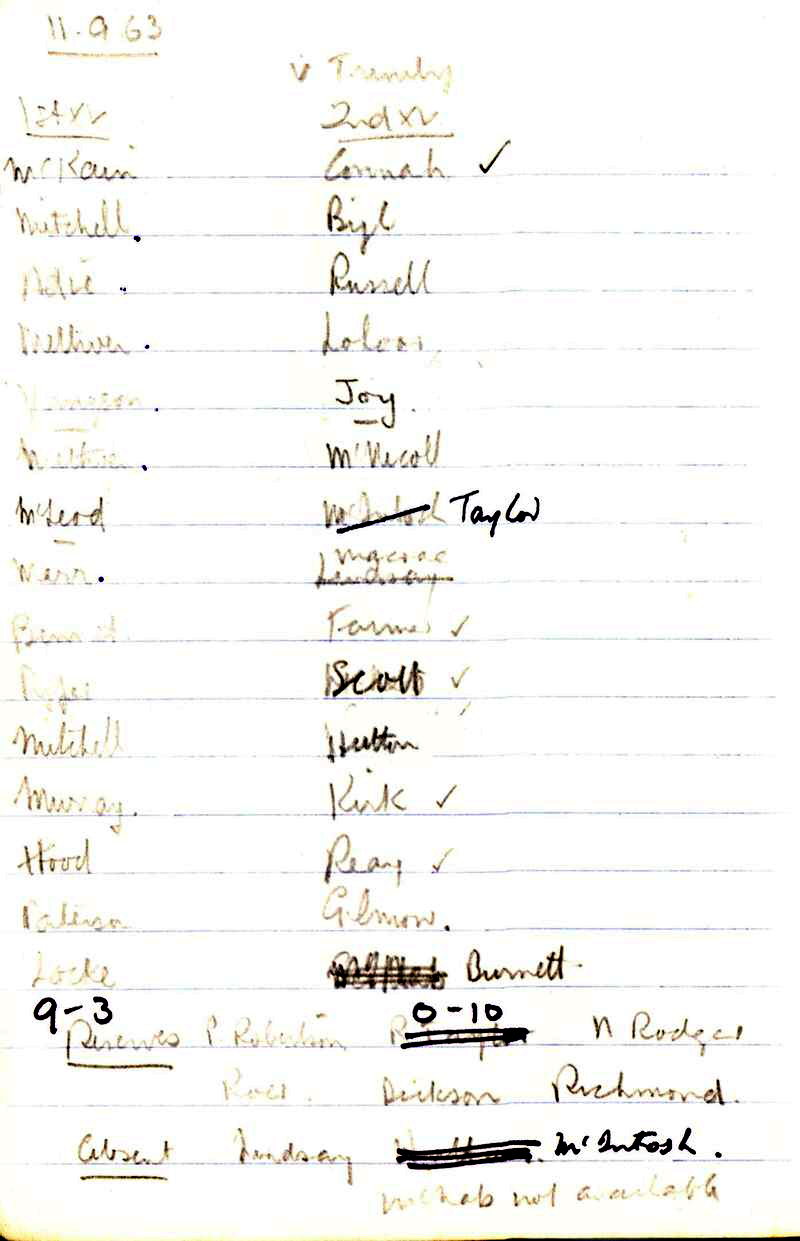 11.9.63
v
1st XV 2nd XV
McKain Connah ✓
Mitchell.
Adie. Russell
Melliver.
Joy.
McNicoll
McLeod McIntosh Taylor
Marr. Macrae Lindsay
Farmer ✓
Scott ✓
Mitchell Hutton
Murray. Kirk ✓
Hood Reay ✓
Paterson Gilmour.
Locke Burnett.
9-3 0-10
Reserves P. Robertson R Taylor N Rodger
Ross. Dickson Richmond.
Absent Lindsay McIntosh.
McNab not available